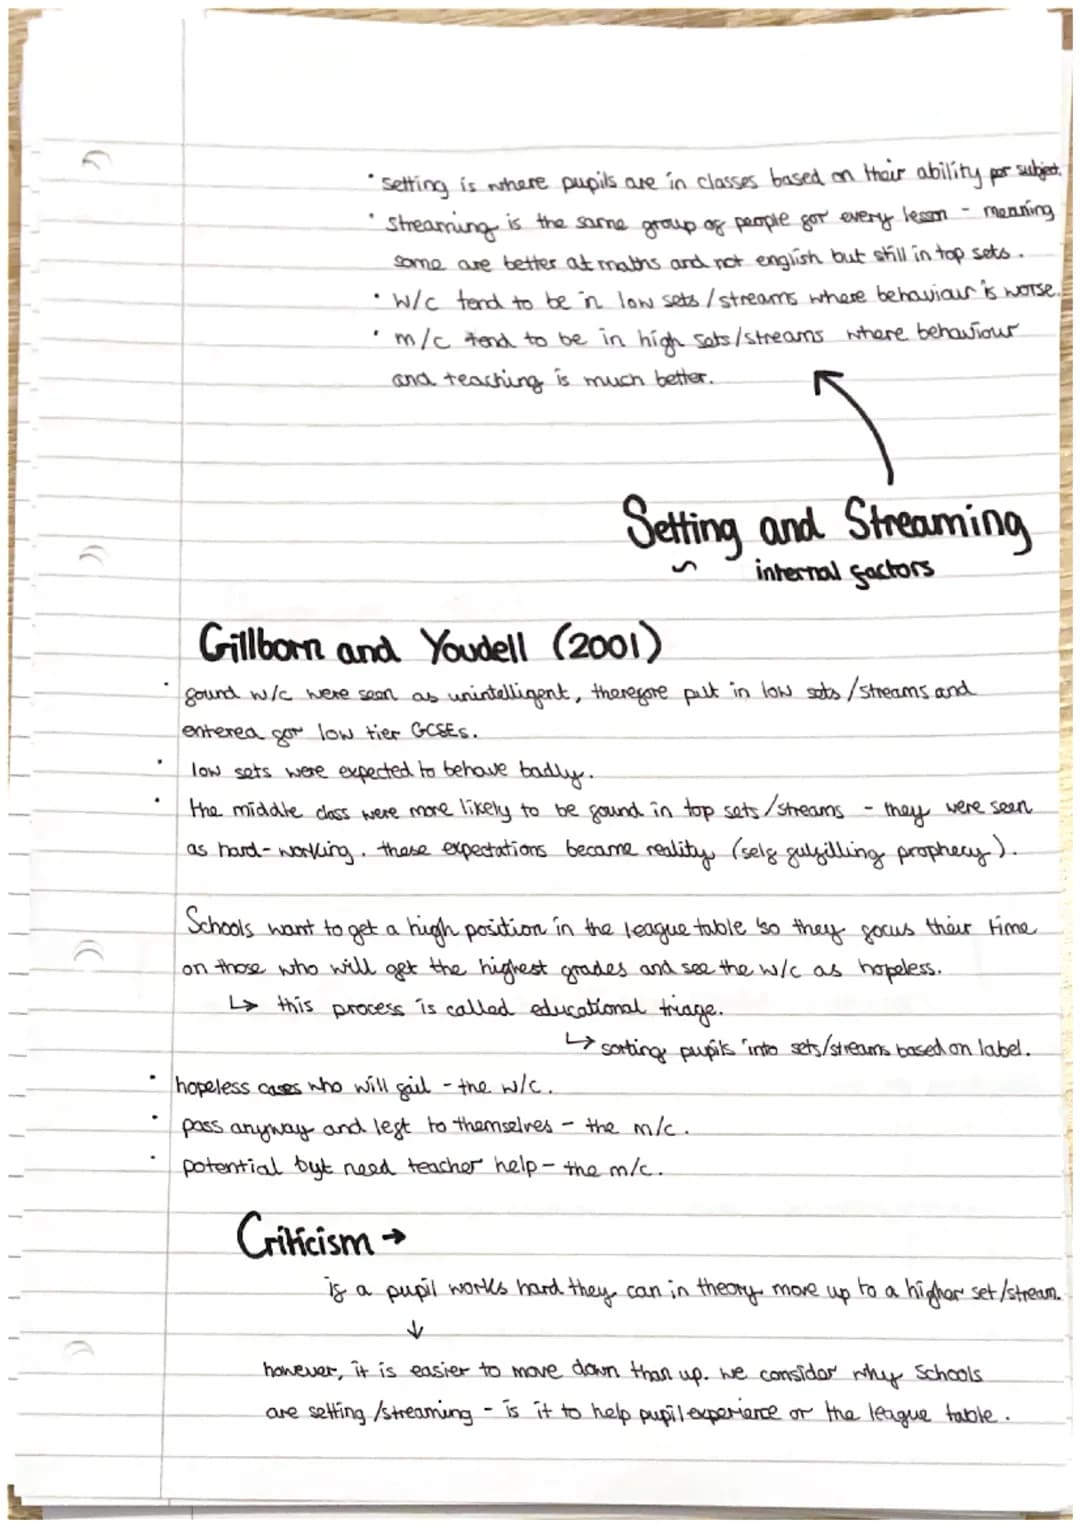 • setting is where pupils are in classes based on their ability per subject.
• streaming is the same group of people for every lesson - meaning
some are better at maths and not english but still in top sets.
• w/c tend to be in low sets/streams where behaviour is worse.
• m/c tend to be in high sets/streams where behaviour
and teaching is much better.
Setting and Streaming
internal factors
Gillborn and Youdell (2001)
• found w/c were seen as unintelligent, therefore put in low sets/streams and
entered for low tier GCSEs.
• low sets were expected to behave badly.
• the middle class were more likely to be found in top sets/streams - they were seen
as hard-working. these expectations became reality (self fulfilling prophecy).
Schools want to get a high position in the league table so they focus their time
on those who will get the highest grades and see the w/c as hopeless.
↳ this process is called educational triage.
↳ sorting pupils into sets/streams based on label.
• hopeless cases who will fail - the w/c.
• pass anyway and left to themselves - the m/c.
• potential byt need teacher help - the m/c.
Criticism →
if a pupil works hard they can in theory move up to a higher set/stream.
↓
however, it is easier to move down than up. we consider why schools
are setting/streaming - is it to help pupil experience or the league table.